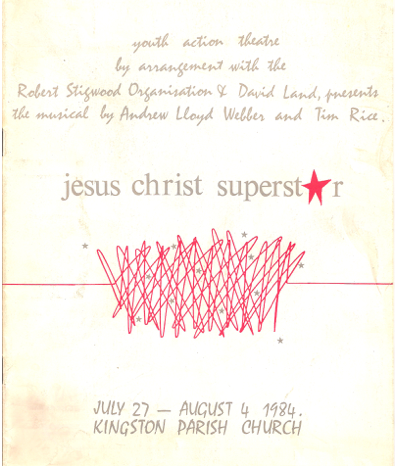 youth action theatre
by arrangement with the
Robert Stigwood Organisation & David Land, presents
the musical by Andrew Lloyd Webber and Tim Rice.
jesus christ superst★r
JULY 27 — AUGUST 4 1984.
KINGSTON PARISH CHURCH